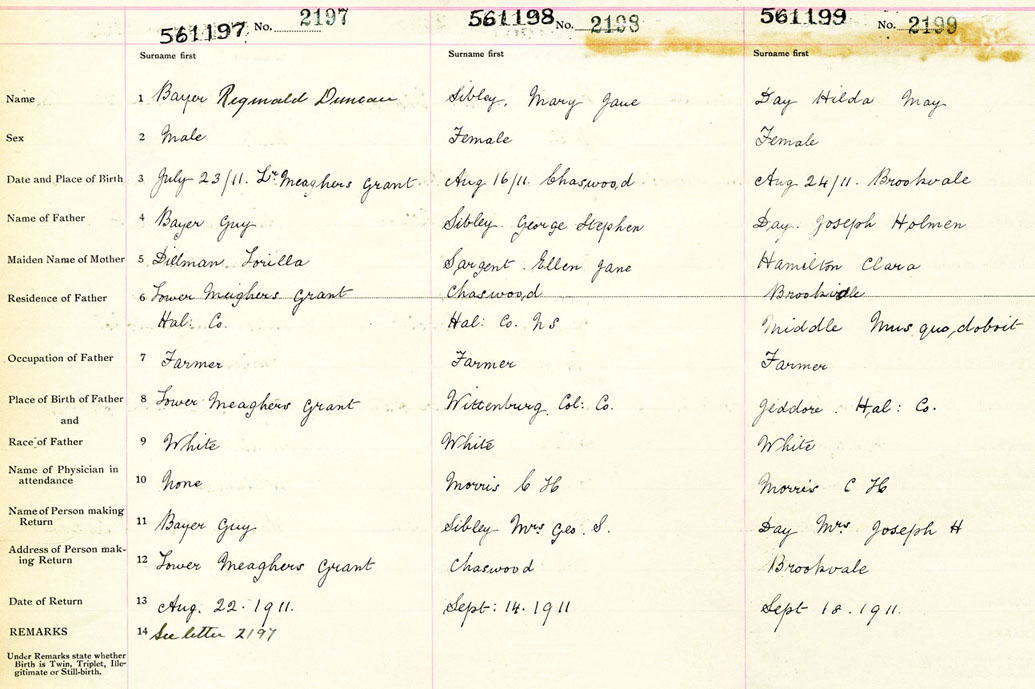 561197 No. 2197 561198 No. 2198 561199 No. 2199
Surname first Surname first Surname first
Name 1 Bayer Reginald Duncan Sibley, Mary Jane Day Hilda May
Sex 2 Male Female Female
Date and Place of Birth 3 July 23/11. Lr Meaghers Grant Aug 16/11 Chaswood Aug 24/11. Brookvale
Name of Father 4 Bayer Guy Sibley. George Stephen Day. Joseph Holmen
Maiden Name of Mother 5 Dillman. Lorilla Sargent. Ellen Jane Hamilton Clara
Residence of Father 6 Lower Meighers Grant Chaswood
Hal: Co. Hal: Co. NS Middle Musquodoboit
Occupation of Father 7 Farmer Farmer Farmer
Place of Birth of Father 8 Lower Meaghers Grant Wittenburg Col: Co. Jeddore. Hal: Co.
and
Race of Father 9 White White White
Name of Physician in
attendance 10 None Morris C H Morris C H
Name of Person making
Return 11 Bayer Guy Sibley Mrs Geo. S. Day Mrs Joseph H
Address of Person mak-
ing Return 12 Lower Meaghers Grant Chaswood Brookvale
Date of Return 13 Aug. 22. 1911. Sept: 14. 1911 Sept 18. 1911.
REMARKS 14 See letter 2197
Under Remarks state whether
Birth is Twin, Triplet, Ille-
gitimate or Still-birth.